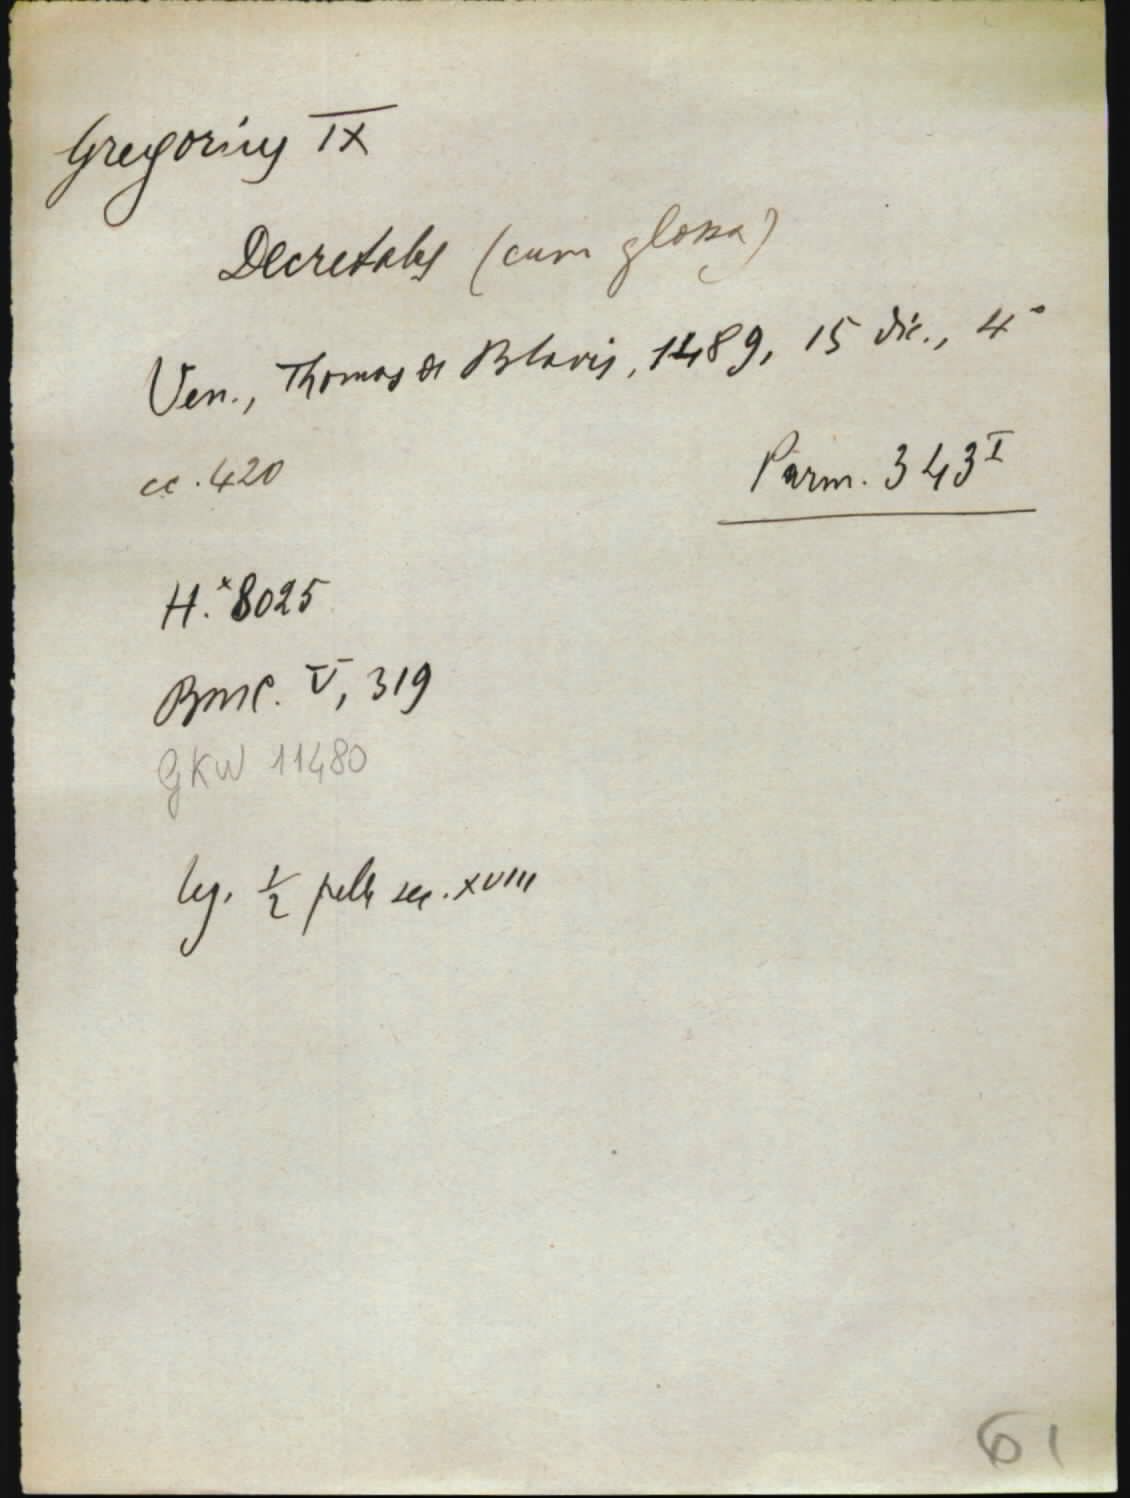 Gregorius IX
Decretales (cum glossa)
Ven., Thomas de Blavis, 1489, 15 dic., 4°
cc. 420
Parm. 343 I
H.* 8025
BMC. V, 319
GKW 11480
leg. 1/2 pelle sec. XVIII
61